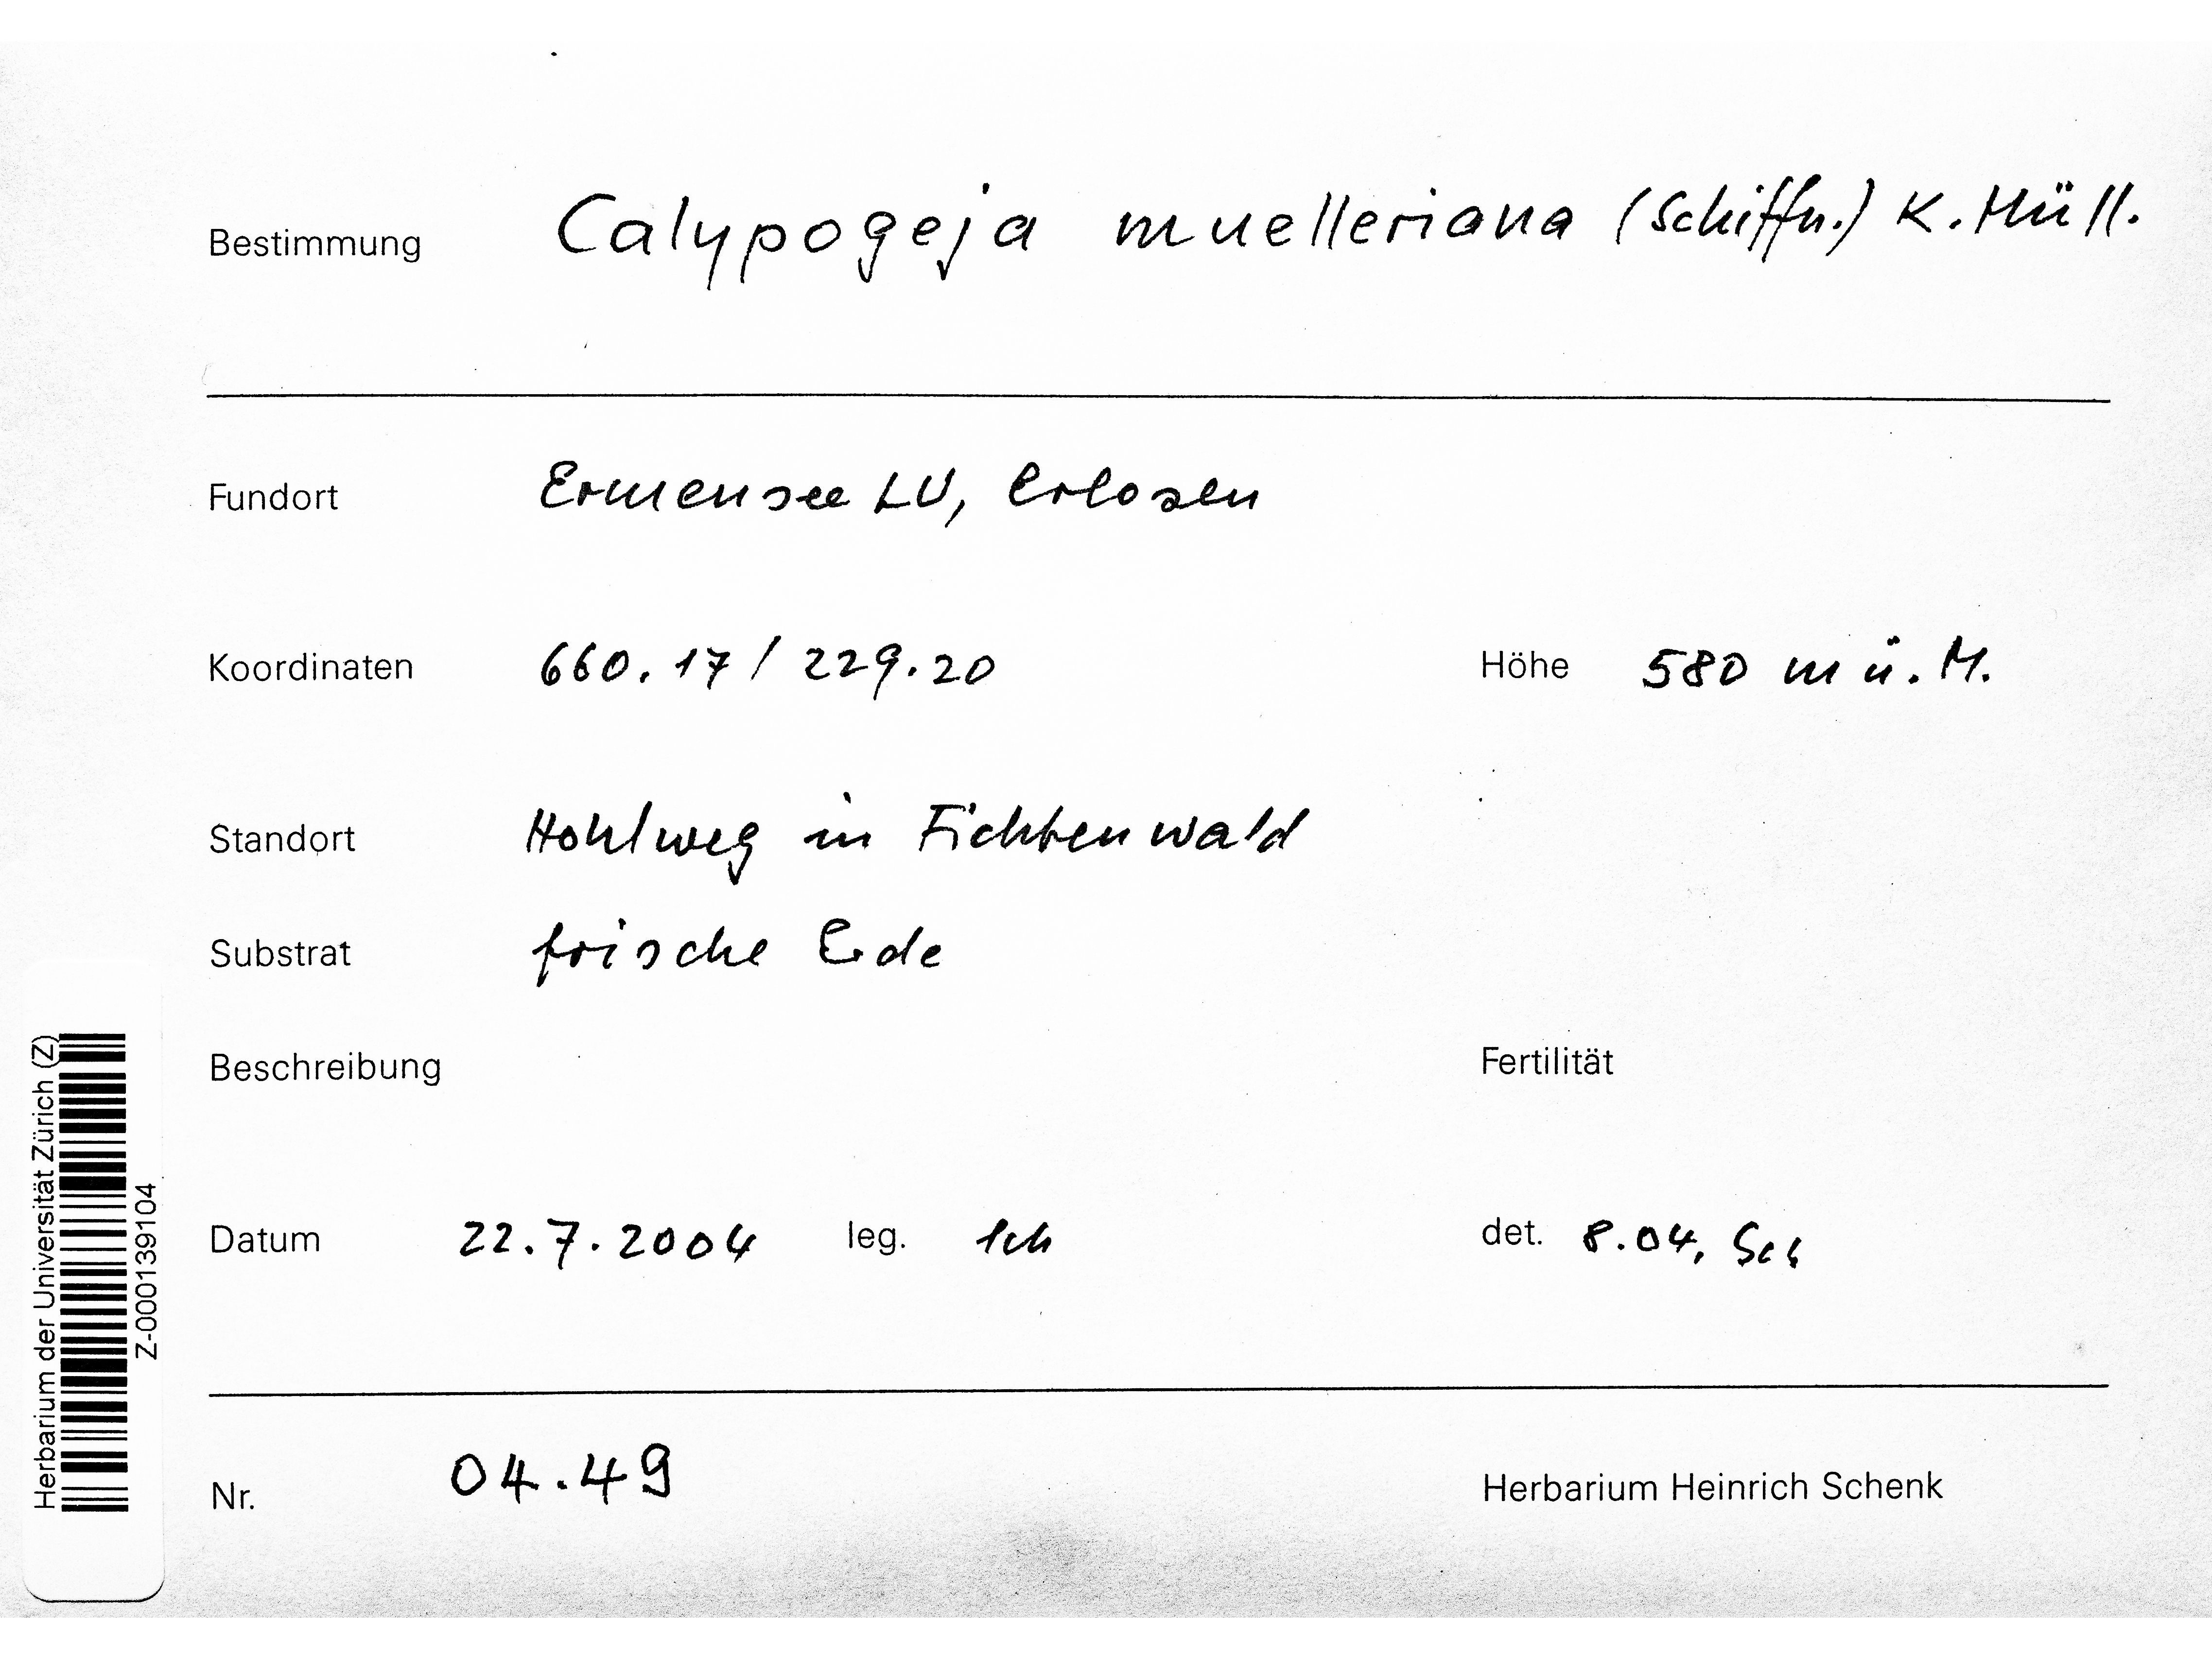 Bestimmung Calypogeja muelleriana (Schiffn.) K. Müll.
Fundort Ermensee LU, Erlosen
Koordinaten 660.17 / 229.20 Höhe 580 m ü. M.
Standort Hohlweg in Fichtenwald
Substrat frische Erde
Beschreibung Fertilität
Datum 22.7.2004 leg. Sch det. 8.04, Sch
Nr. 04.49 Herbarium Heinrich Schenk
Herbarium der Universität Zürich (Z)
Z-000139104